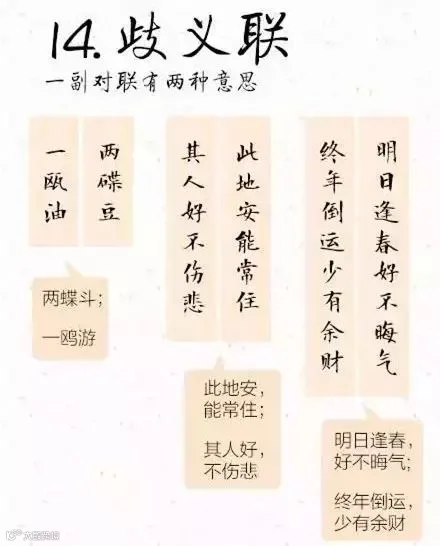 14.歧义联
一副对联有两种意思
两碟豆
一瓯油
两蝶斗;
一鸥游
此地安能常住
其人好不伤悲
此地安,
能常住;
其人好,
不伤悲
明日逢春好不晦气
终年倒运少有余财
明日逢春,
好不晦气;
终年倒运,
少有余财